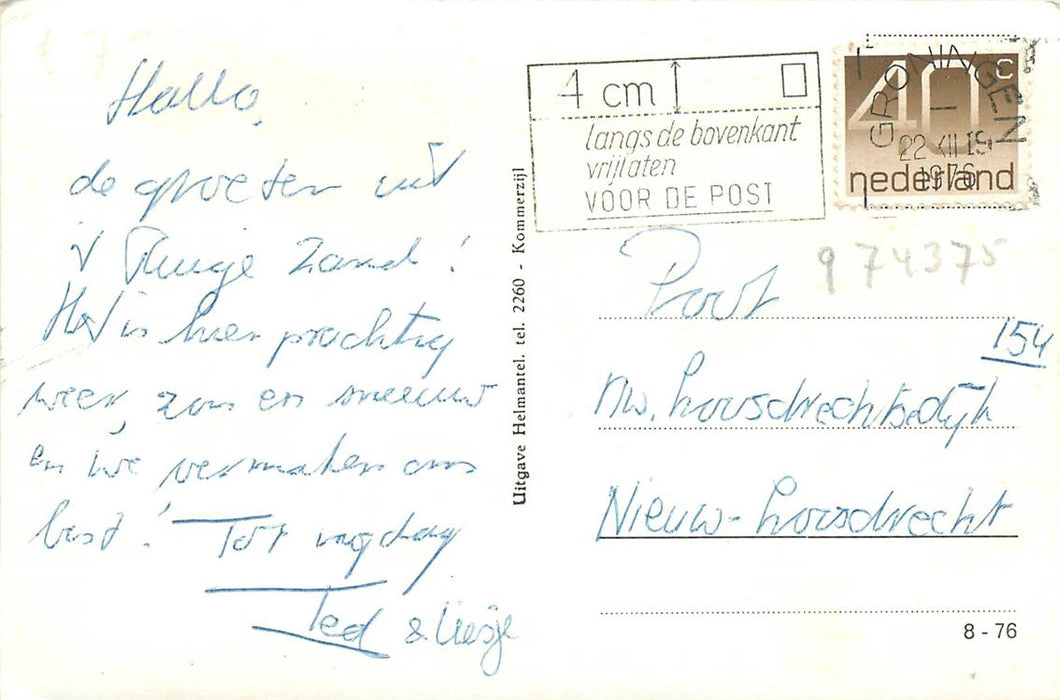 Hallo,
de groeten uit
't Ruige Zand!
Het is hier prachtig
weer, zon en sneeuw
en we vermaken ons
best! Tot vrijdag
Ted & Liesje
Uitgave Helmantel. tel. 2260 - Kommerzijl
4 cm
langs de bovenkant
vrijlaten
VOOR DE POST
40 c
nederland
GRONINGEN
22 XII 19
1976
974375
Poot
154
Nw. Loosdrechtsedijk
Nieuw-Loosdrecht
8 - 76